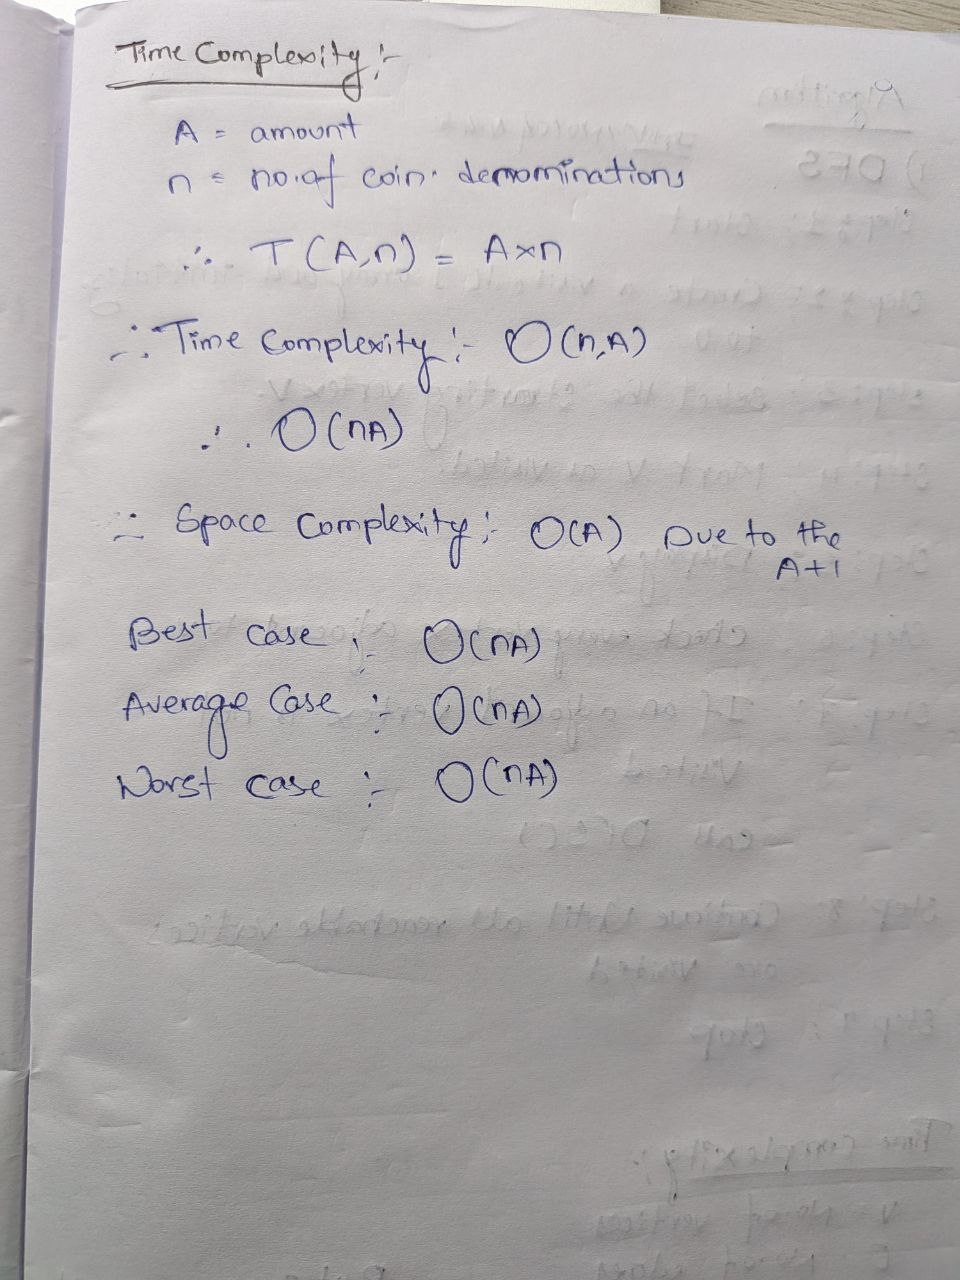 Time Complexity :-
A = amount
n = no. of coin. demominations
∴ T (A,n) = A×n
∴ Time Complexity :- O(n,A)
∴ O(nA)
∴ Space Complexity :- O(A) Due to the
A+1
Best case :- O(nA)
Average Case :- O(nA)
Worst case :- O(nA)